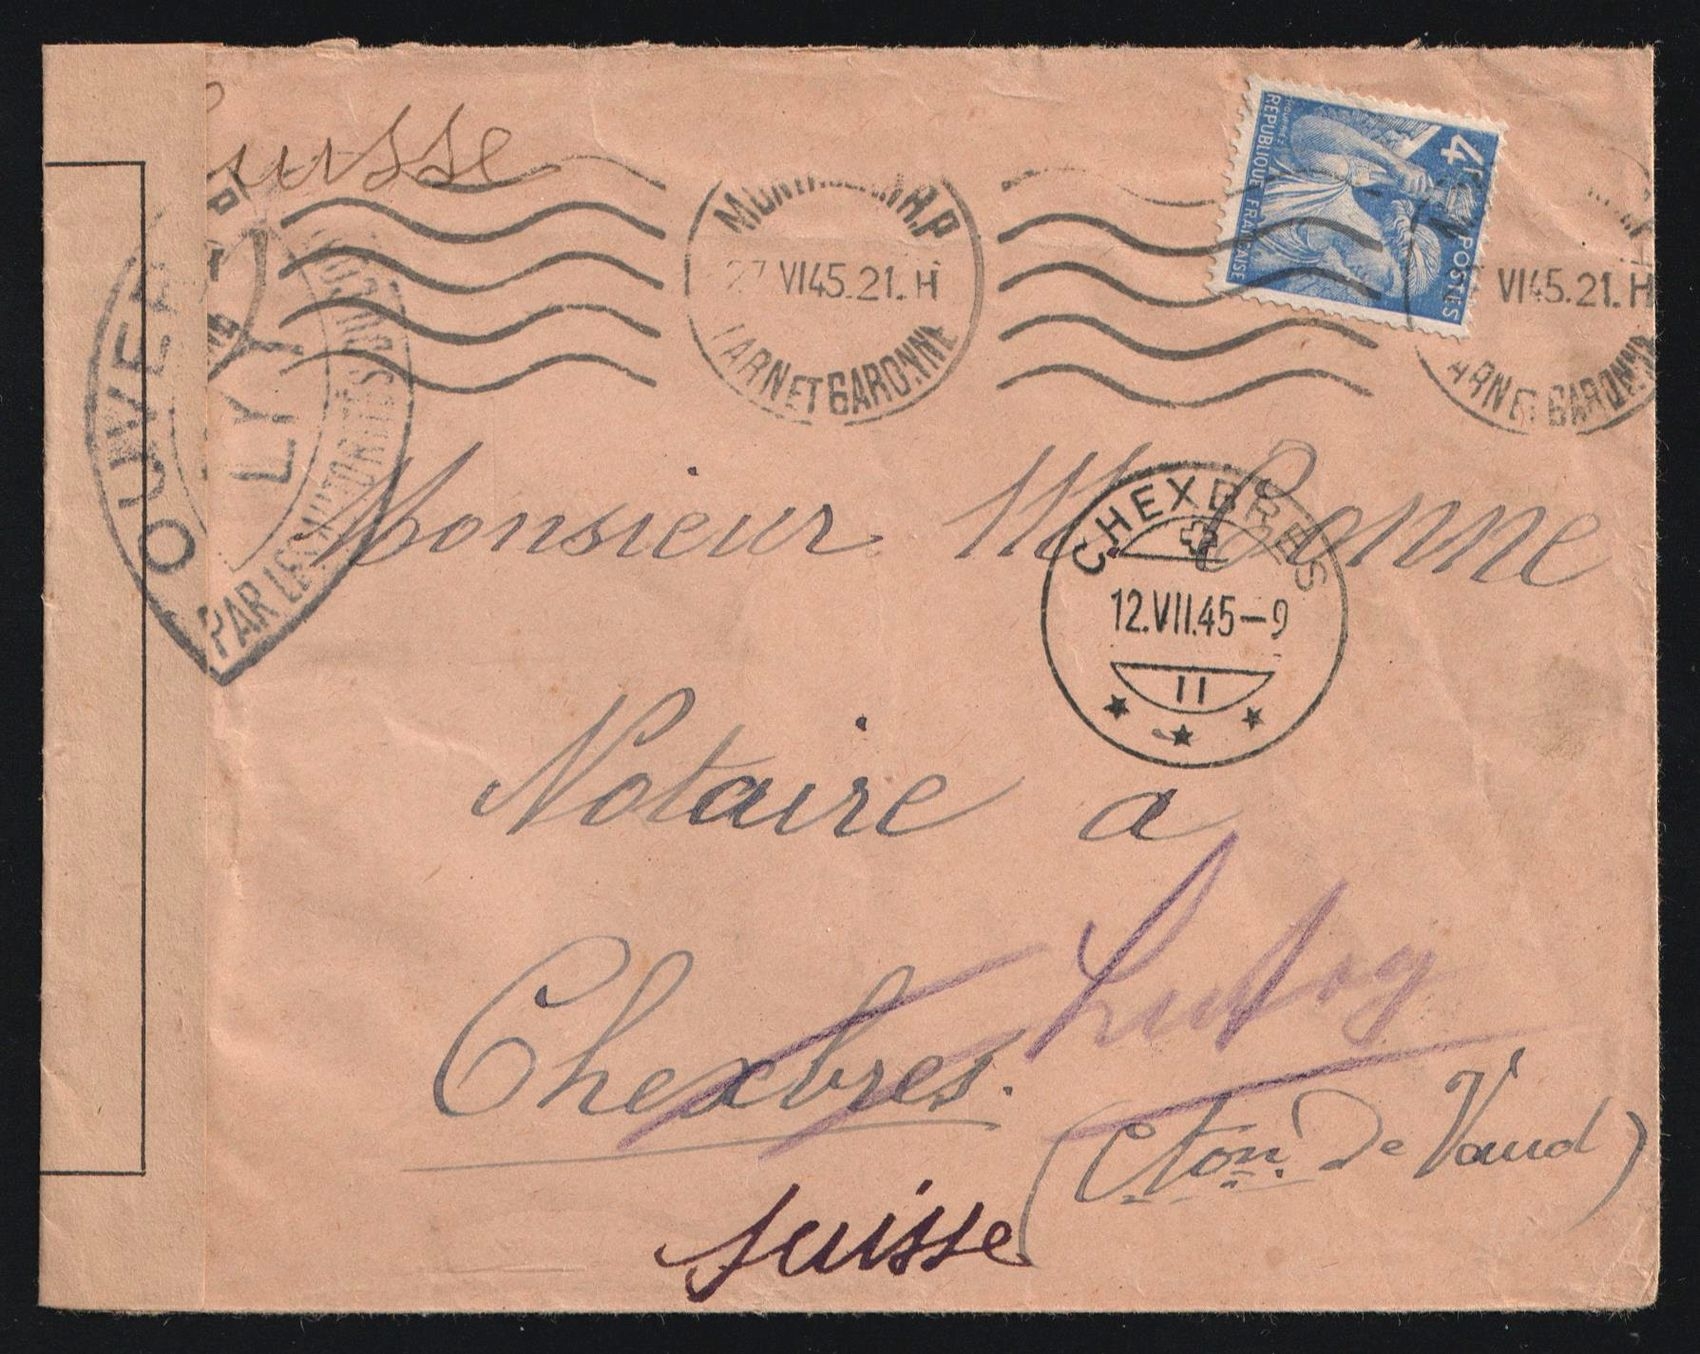 Suisse
MONTAUBAN R.P
27 VI 45. 21. H
TARN ET GARONNE
VI 45. 21. H
TARN ET GARONNE
4F
POSTES
RÉPUBLIQUE FRANÇAISE
OUVERT
LY
PAR LES AUTORITÉS DE CONTRÔLE
Monsieur M Bonne
CHEXBRES
12.VII.45-9
11
Notaire a
Chexbres. Lutry
(Cton de Vaud)
suisse